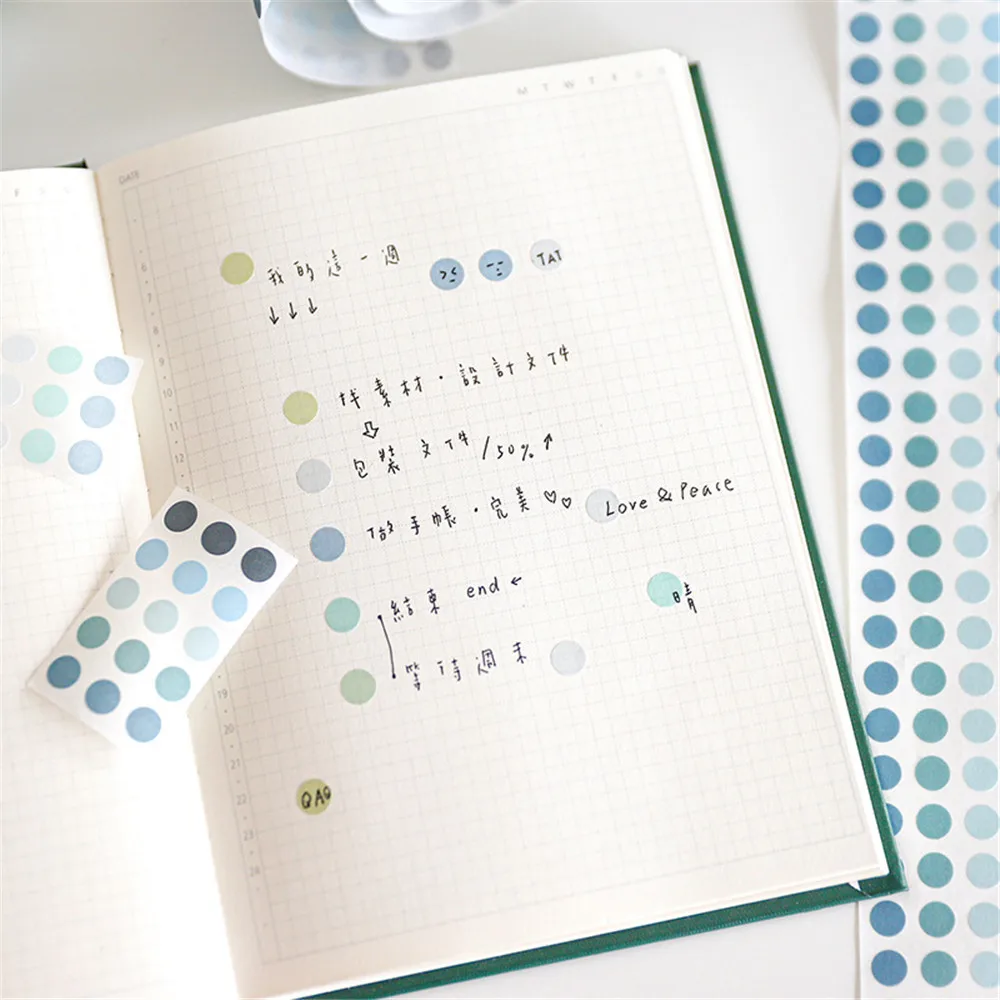 M T W T F S S
DATE
F S S
我的這一週 TAT
↓↓↓
找素材・設計文件
包裝文件/50%↑
做手帳・完美♡♡ Love & Peace
結束 end ←
晴
等待週末
QAQ
6
7
8
9
10
11
12
19
20
21
22
23
24